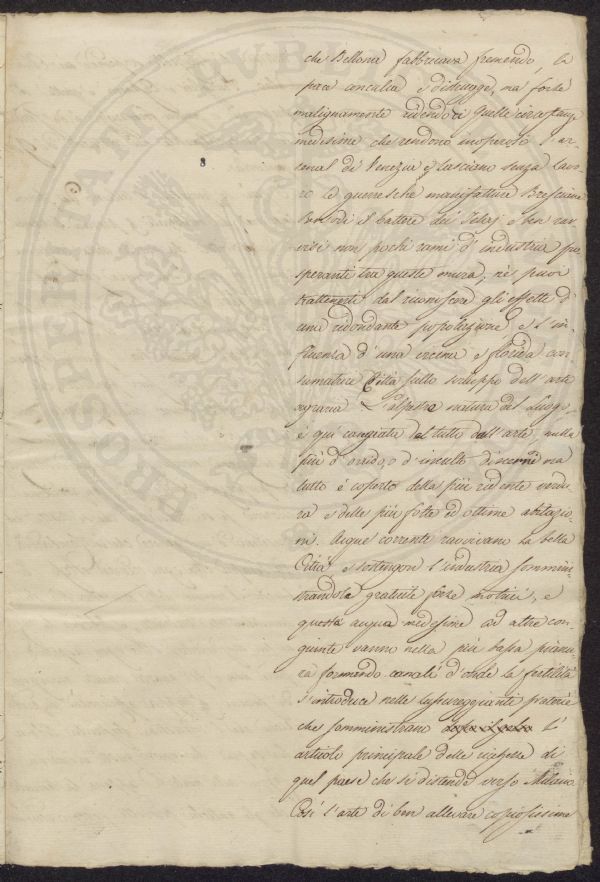 PROSPERITATI PVBLI
che Bellona fabbricava fremendo, la
pace conculca e distrugge, ma forse
malignamente ridendo quelle circostanze
medesime che rendono inoperoso l'ar-
senal di Venezia e lasciano senza lavo-
ro le guerresche manifatture Bresciane
il battere dei Telaj e ben rav-
visi non pochi rami d'industria pro-
speranti tra queste mura; nè puoi
trattenerti dal riconoscere gli effetti d'
una ridondante popolazione e l'in-
fluenza d'una vicina e florida con-
sumatrice Città sullo sviluppo dell'arte
agraria. L'alpestre natura del Luogo
è quì cangiata del tutto dall'arte, nulla
più d'orrido, d'inculto discerni ma
tutto è coperto della più ridente verdu-
ra e delle più folte ed ottime abitazio-
ni. Acque correnti ravvivano la bella
Città e sostengon l'industria sommini-
strandole gratuite forze motrici, e
questa acqua medesime ad altre con-
giunte vanno nella più bassa pianu-
ra formando canali d'onde la fertilità
s'introduce nelle lussureggianti praterie
che somministrano l'
articolo principale delle ricchezze di
quel paese che si distende verso Milano
Così l'arte di ben allevare copiosissime